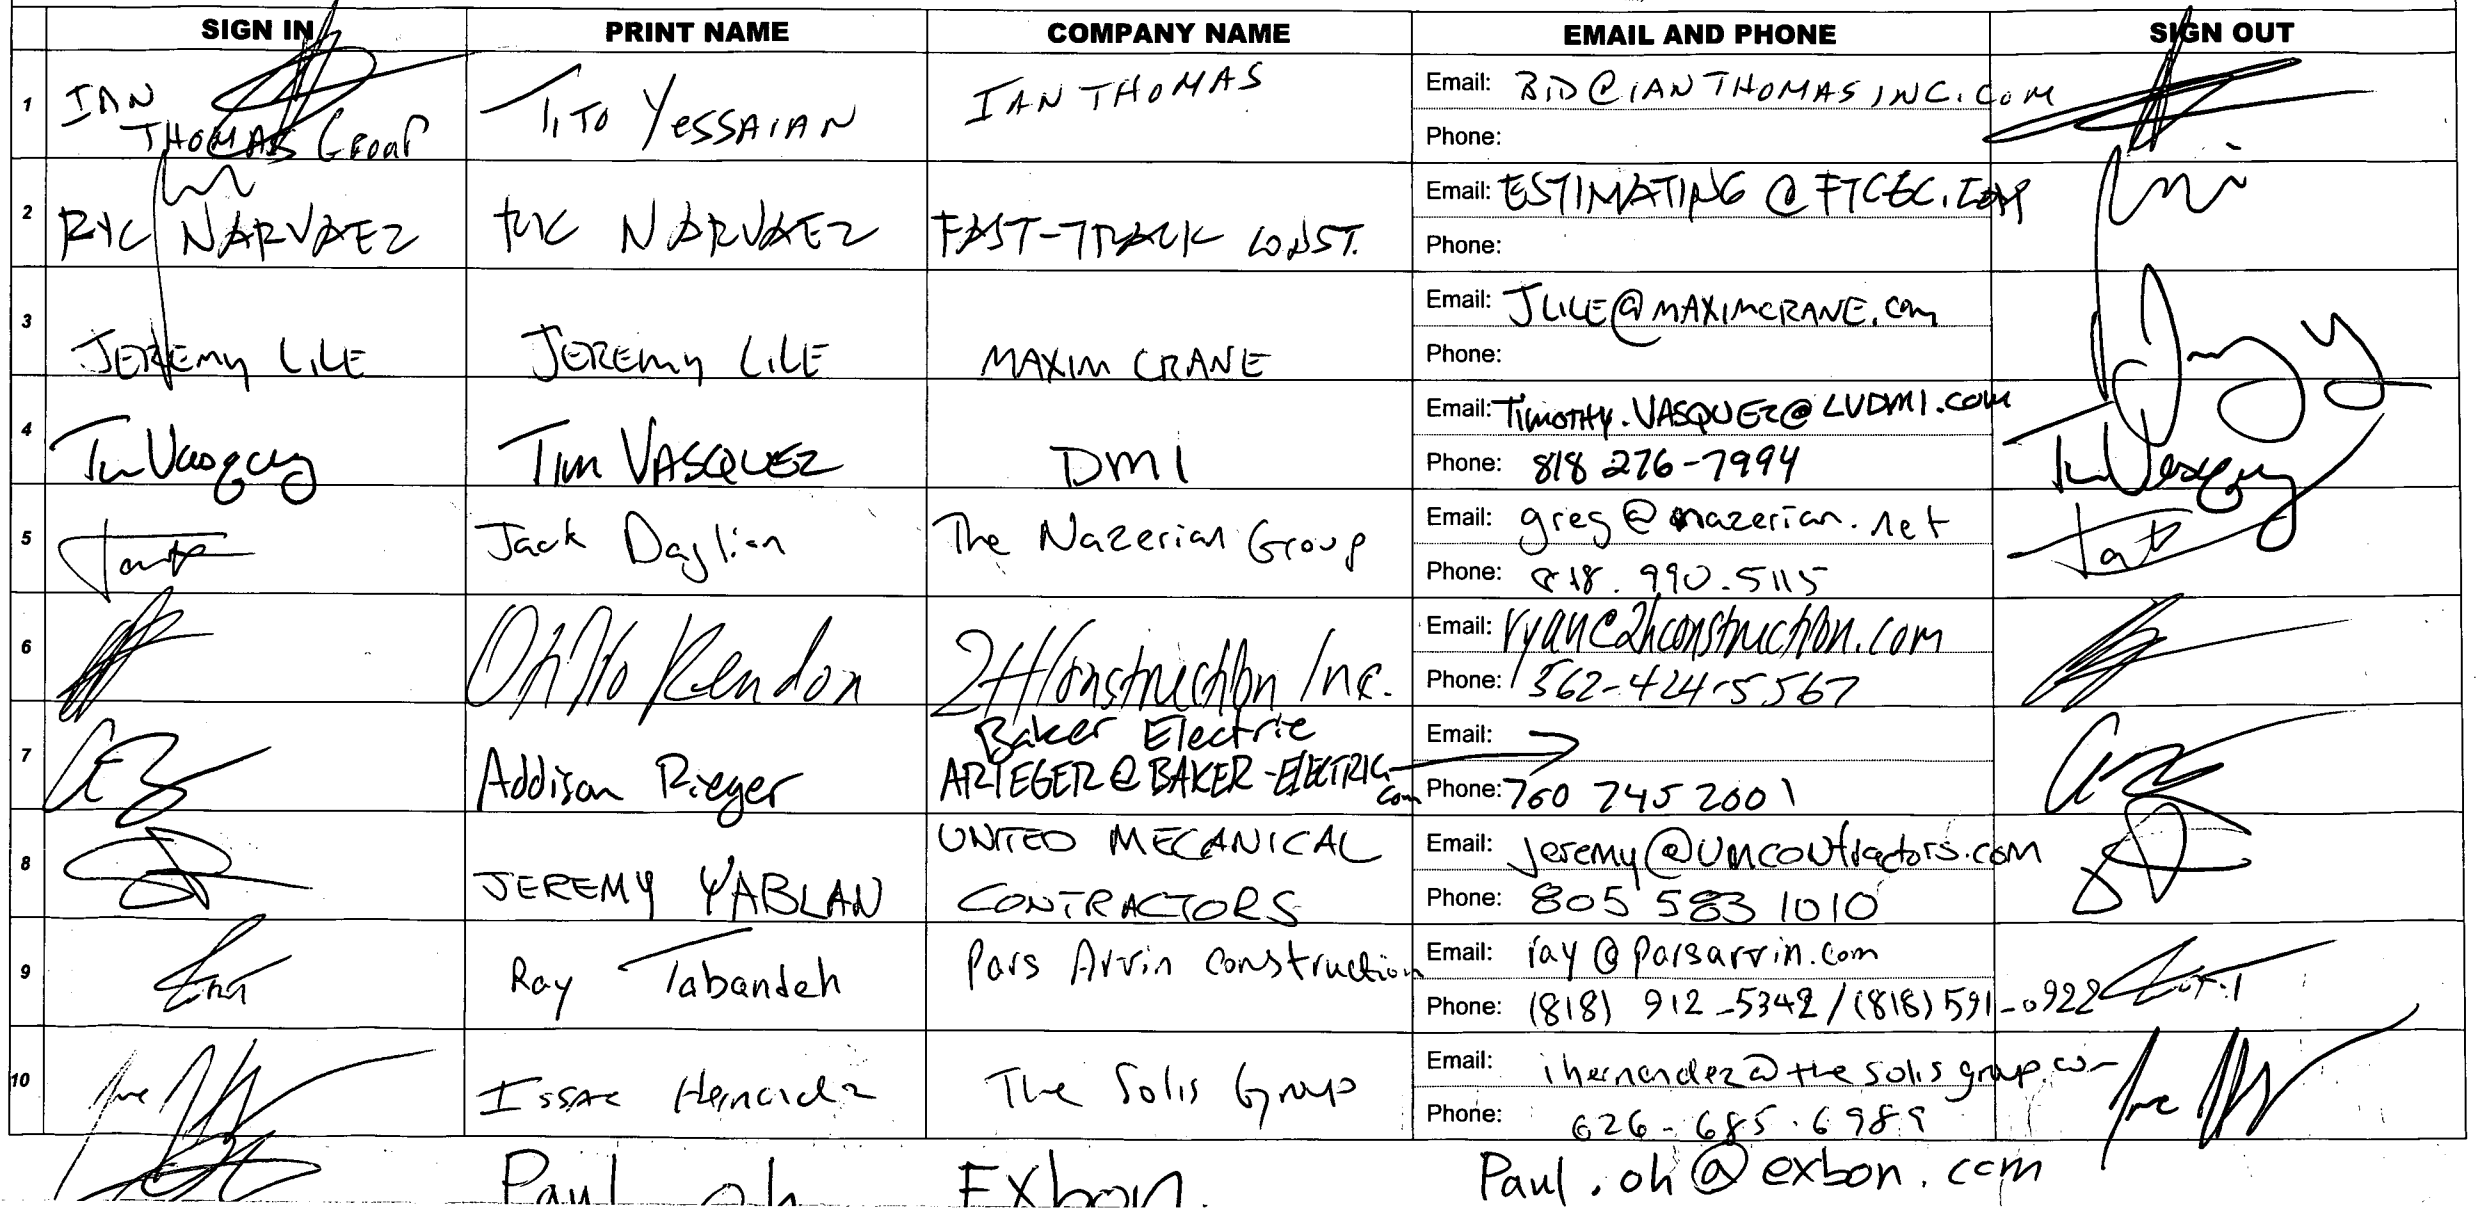 SIGN IN PRINT NAME COMPANY NAME EMAIL AND PHONE SIGN OUT
1 IAN THOMAS Group TITO YESSAIAN IAN THOMAS Email: BID@IANTHOMASINC.COM
Phone:
2 RYC NARVAEZ RYC NARVAEZ FAST-TRACK CONST. Email: ESTIMATING@FTCEC.COM
Phone:
3 JEREMY LILE JEREMY LILE MAXIM CRANE Email: JLILE@MAXIMCRANE.com
Phone:
4 Tim Vasquez TIM VASQUEZ DMI Email: TIMOTHY.VASQUEZ@LVDMI.COM Tim Vasquez
Phone: 818 276-7994
5 Jack Daglian The Nazerian Group Email: greg@nazerian.net
Phone: 818.990.5115
6 Otillo Rendon 2H Construction Inc. Email: ryan@2hconstruction.com
Phone: 562-424-5567
7 Addison Rieger Baker Electric Email:
ARIEGER@BAKER-ELECTRIC.com Phone: 760 745 2001
8 JEREMY YABLAN UNITED MECANICAL Email: Jeremy@umcontractors.com
CONTRACTORS Phone: 805 583 1010
9 Ray Tabandeh Pars Arvin construction Email: ray@parsarvin.com
Phone: (818) 912-5342/(818)591-0922
10 Issac Hernandz The Solis Group Email: ihernandez@thesolisgroup.com
Phone: 626-685.6989
Paul oh Exbon. Paul.oh@exbon.com